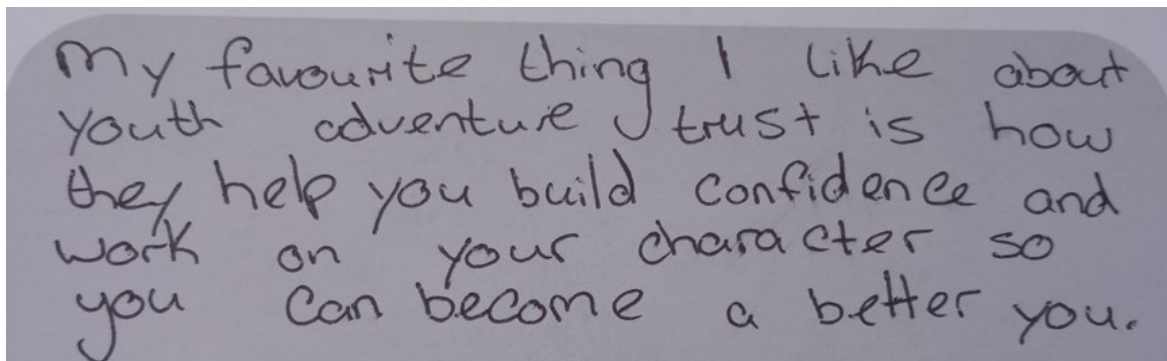 My favourite thing I like about
youth adventure trust is how
they help you build confidence and
work on your character so
you can become a better you.